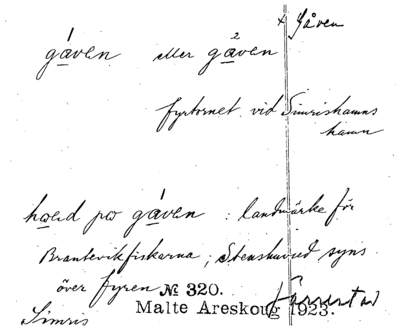 × Gåven
gåven eller gåven
fyrtornet vid Simrishamns
hamn
hold på gåven : landmärke för
Brantevikfiskarna; Stenshuvud syns
över fyren
№ 320.
Malte Areskoug 1923.
Simris